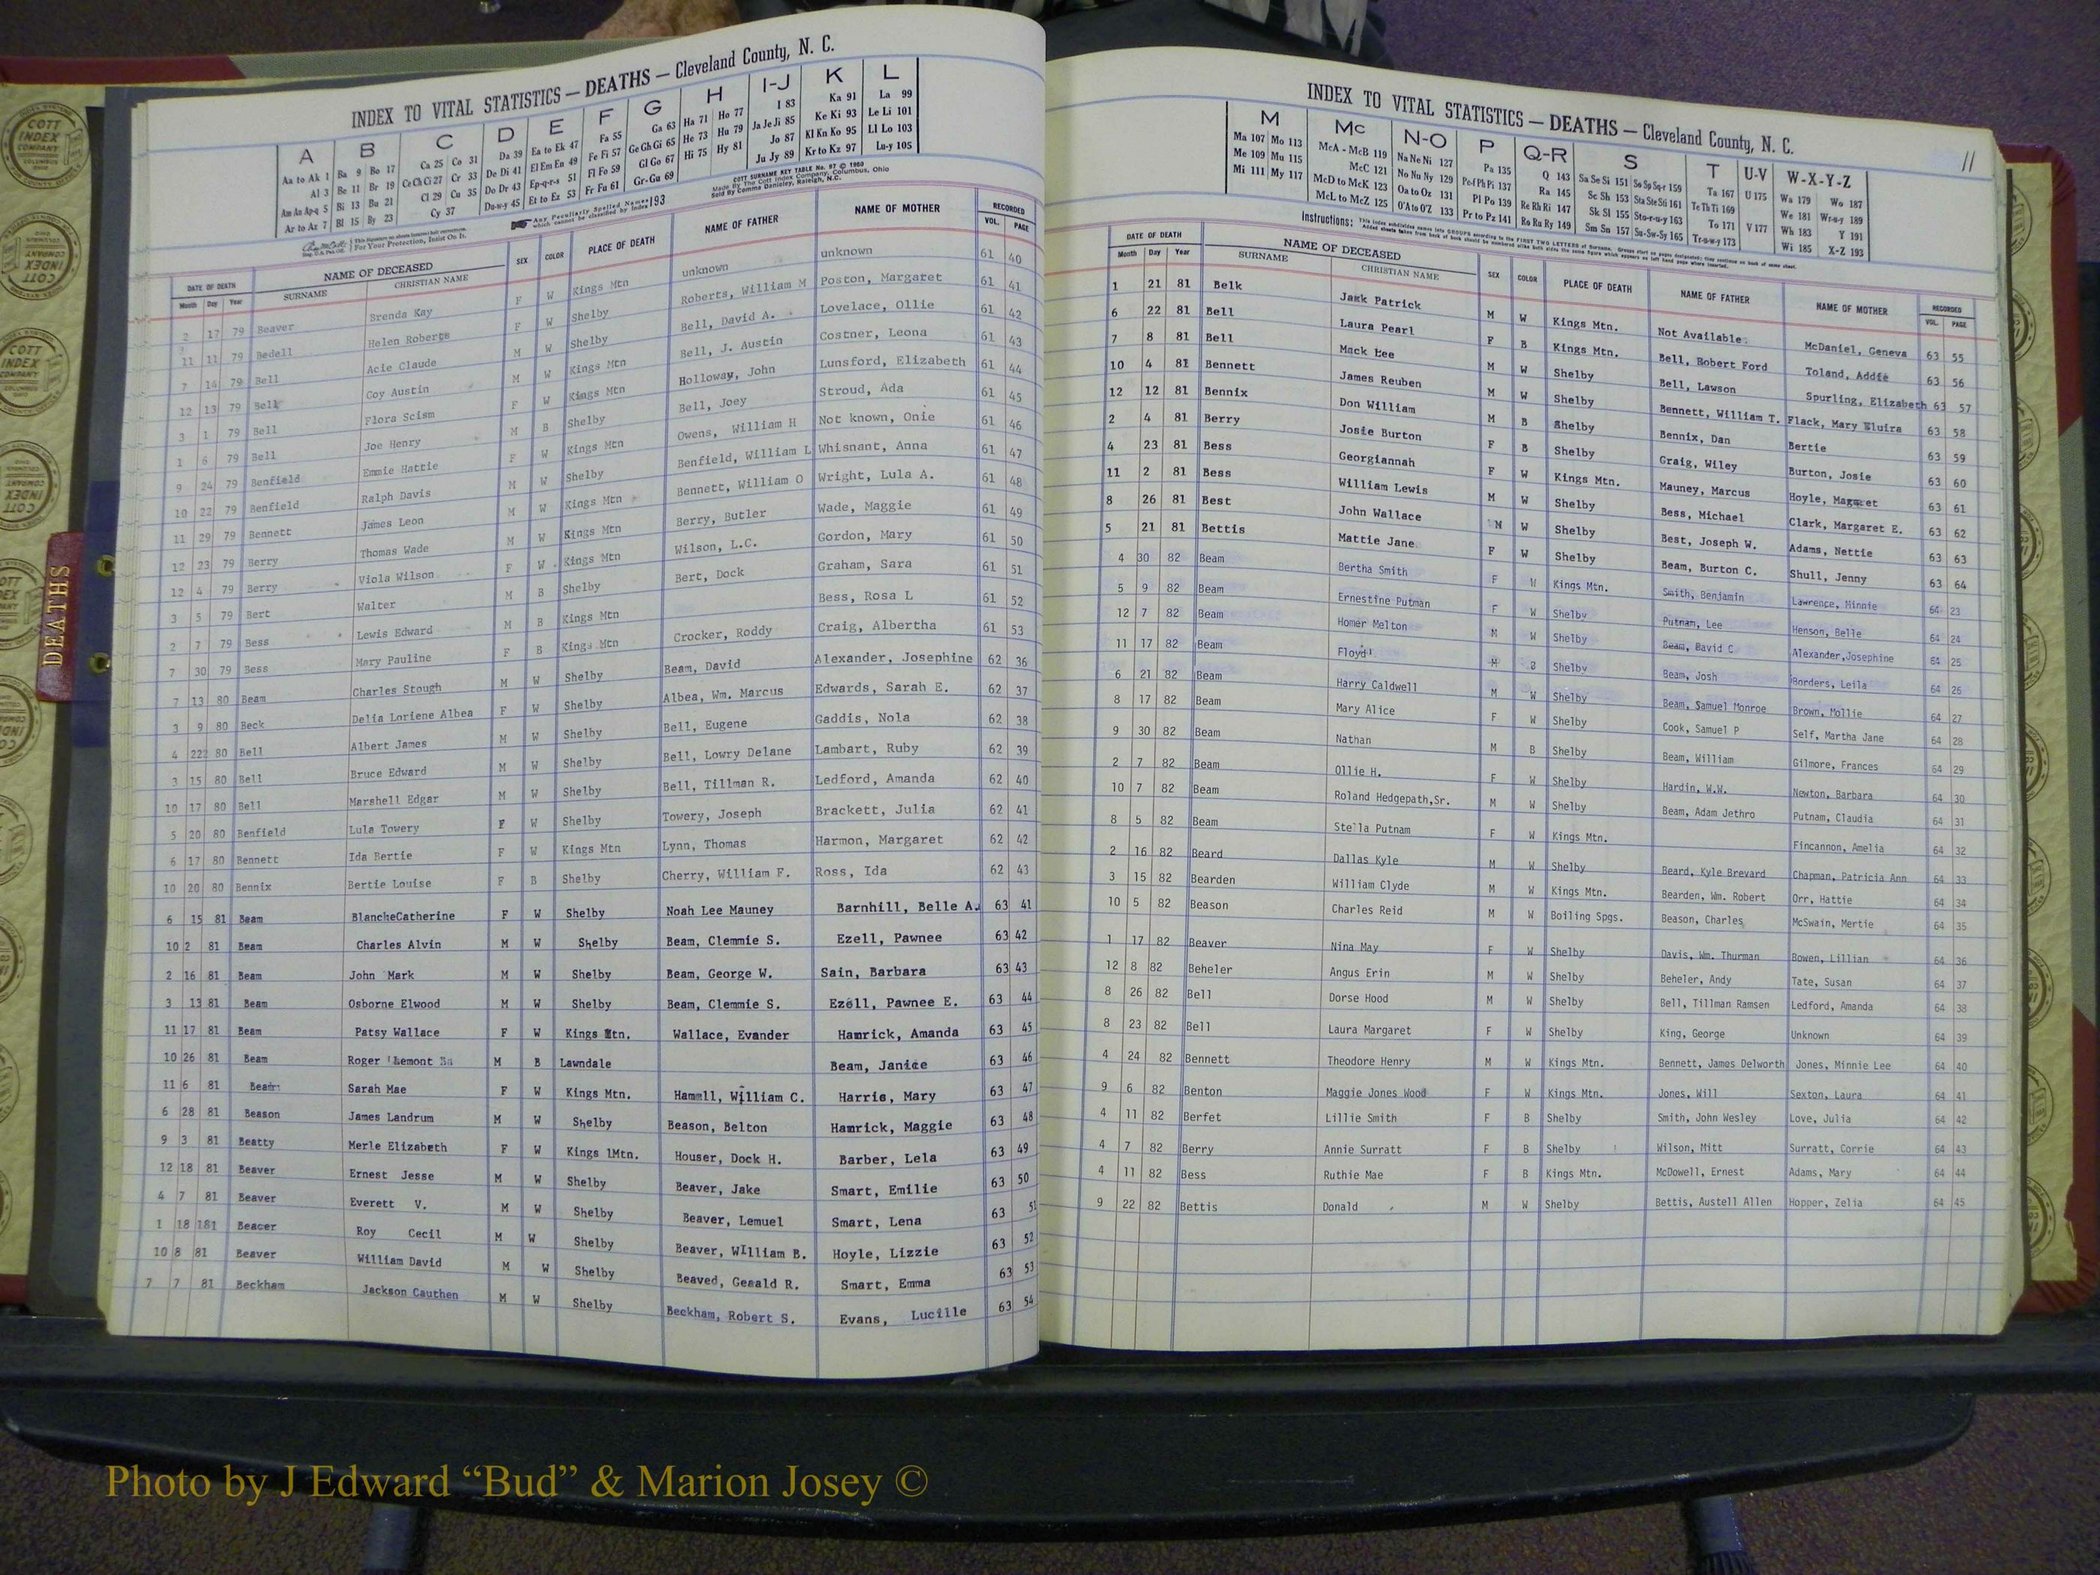 INDEX TO VITAL STATISTICS — DEATHS — Cleveland County, N. C.
A B C D E F G H I-J K L
Aa to Ak 1 Ba 9 Bo 17 Ca 25 Co 31 Da 39 Ea to Ek 47 Fa 55 Ga 63 Ha 71 Ho 77 I 83 Ka 91 La 99
Al 3 Be 11 Br 19 Ce Ch Ci 27 Cr 33 De Di 41 El Em En 49 Fe Fi 57 Ge Gh Gi 65 He 73 Hu 79 Ja Je Ji 85 Ke Ki 93 Le Li 101
Am An Ap-q 5 Bi 13 Bu 21 Cl 29 Cu 35 Do Dr 43 Ep-q-r-s 51 Fl Fo 59 Gl Go 67 Hi 75 Hy 81 Jo 87 Kl Kn Ko 95 Ll Lo 103
Ar to Az 7 Bl 15 By 23 Cy 37 Du-w-y 45 Et to Ez 53 Fr Fu 61 Gr-Gu 69 Ju Jy 89 Kr to Kz 97 Lu-y 105
For Your Protection, Insist On It.
Any Peculiarly Spelled Names which cannot be classified by Index 193
COTT SURNAME KEY TABLE No. 97 © 1960
Made By The Cott Index Company, Columbus, Ohio
DATE OF DEATH NAME OF DECEASED SEX COLOR PLACE OF DEATH NAME OF FATHER NAME OF MOTHER RECORDED
Month Day Year SURNAME CHRISTIAN NAME VOL. PAGE
2 17 79 Beaver Brenda Kay F W Kings Mtn unknown unknown 61 40
11 11 79 Bedell Helen Roberts F W Shelby Roberts, William M Poston, Margaret 61 41
7 14 79 Bell Acie Claude M W Shelby Bell, David A. Lovelace, Ollie 61 42
12 13 79 Bell Coy Austin M W Kings Mtn Bell, J. Austin Costner, Leona 61 43
3 1 79 Bell Flora Scism F W Kings Mtn Holloway, John Lunsford, Elizabeth 61 44
1 6 79 Bell Joe Henry M B Shelby Bell, Joey Stroud, Ada 61 45
9 24 79 Benfield Emmie Hattie F W Kings Mtn Owens, William H Not known, Onie 61 46
10 22 79 Benfield Ralph Davis M W Shelby Benfield, William L Whisnant, Anna 61 47
11 29 79 Bennett James Leon M W Kings Mtn Bennett, William O Wright, Lula A. 61 48
12 23 79 Berry Thomas Wade M W Kings Mtn Berry, Butler Wade, Maggie 61 49
12 4 79 Berry Viola Wilson F W Kings Mtn Wilson, L.C. Gordon, Mary 61 50
3 5 79 Bert Walter M B Shelby Bert, Dock Graham, Sara 61 51
2 7 79 Bess Lewis Edward M B Kings Mtn Bess, Rosa L 61 52
7 30 79 Bess Mary Pauline F B Kings Mtn Crocker, Roddy Craig, Albertha 61 53
7 13 80 Beam Charles Stough M W Shelby Beam, David Alexander, Josephine 62 36
3 9 80 Beck Delia Loriene Albea F W Shelby Albea, Wm. Marcus Edwards, Sarah E. 62 37
4 222 80 Bell Albert James M W Shelby Bell, Eugene Gaddis, Nola 62 38
3 15 80 Bell Bruce Edward M W Shelby Bell, Lowry Delane Lambart, Ruby 62 39
10 17 80 Bell Marshell Edgar M W Shelby Bell, Tillman R. Ledford, Amanda 62 40
5 20 80 Benfield Lula Towery F W Shelby Towery, Joseph Brackett, Julia 62 41
6 17 80 Bennett Ida Bertie F W Kings Mtn Lynn, Thomas Harmon, Margaret 62 42
10 20 80 Bennix Bertie Louise F B Shelby Cherry, William F. Ross, Ida 62 43
6 15 81 Beam BlancheCatherine F W Shelby Noah Lee Mauney Barnhill, Belle A. 63 41
10 2 81 Beam Charles Alvin M W Shelby Beam, Clemmie S. Ezell, Pawnee 63 42
2 16 81 Beam John Mark M W Shelby Beam, George W. Sain, Barbara 63 43
3 13 81 Beam Osborne Elwood M W Shelby Beam, Clemmie S. Ezell, Pawnee E. 63 44
11 17 81 Beam Patsy Wallace F W Kings Mtn. Wallace, Evander Hamrick, Amanda 63 45
10 26 81 Beam Roger Lemont M B Lawndale Beam, Janice 63 46
11 6 81 Beam Sarah Mae F W Kings Mtn. Hammll, William C. Harris, Mary 63 47
6 28 81 Beason James Landrum M W Shelby Beason, Belton Hamrick, Maggie 63 48
9 3 81 Beatty Merle Elizabeth F W Kings lMtn. Houser, Dock H. Barber, Lela 63 49
12 18 81 Beaver Ernest Jesse M W Shelby Beaver, Jake Smart, Emilie 63 50
4 7 81 Beaver Everett V. M W Shelby Beaver, Lemuel Smart, Lena 63 51
1 18 181 Beacer Roy Cecil M W Shelby Beaver, WIlliam B. Hoyle, Lizzie 63 52
10 8 81 Beaver William David M W Shelby Beaved, Geaald R. Smart, Emma 63 53
7 7 81 Beckham Jackson Cauthen M W Shelby Beckham, Robert S. Evans, Lucille 63 54
INDEX TO VITAL STATISTICS — DEATHS — Cleveland County, N. C.
11
M Mc N-O P Q-R S T U-V W-X-Y-Z
Ma 107 Mo 113 McA - McB 119 Na Ne Ni 127 Pa 135 Q 143 Sa Se Si 151 So Sp Sq-r 159 Ta 167 U 175 Wa 179 Wo 187
Me 109 Mu 115 McC 121 No Nu Ny 129 Pe-f Ph Pi 137 Ra 145 Sc Sh 153 Sta Ste Sti 161 Te Th Ti 169 We 181 Wr-u-y 189
Mi 111 My 117 McD to McK 123 Oa to Oz 131 Pl Po 139 Re Rh Ri 147 Sk Sl 155 Sto-r-u-y 163 To 171 V 177 Wh 183 Y 191
McL to McZ 125 O'A to O'Z 133 Pr to Pz 141 Ro Ru Ry 149 Sm Sn 157 Su-Sw-Sy 165 Tr-u-w-y 173 Wi 185 X-Z 193
DATE OF DEATH NAME OF DECEASED SEX COLOR PLACE OF DEATH NAME OF FATHER NAME OF MOTHER RECORDED
Month Day Year SURNAME CHRISTIAN NAME VOL. PAGE
1 21 81 Belk Jack Patrick M W Kings Mtn. Not Available. McDaniel, Geneva 63 55
6 22 81 Bell Laura Pearl F B Kings Mtn. Bell, Robert Ford Toland, Addie 63 56
7 8 81 Bell Mack Lee M W Shelby Bell, Lawson Spurling, Elizabeth 63 57
10 4 81 Bennett James Reuben M W Shelby Bennett, William T. Flack, Mary Eluira 63 58
12 12 81 Bennix Don William M B Shelby Bennix, Dan Bertie 63 59
2 4 81 Berry Josie Burton F B Shelby Graig, Wiley Burton, Josie 63 60
4 23 81 Bess Georgiannah F W Kings Mtn. Mauney, Marcus Hoyle, Magaret 63 61
11 2 81 Bess William Lewis M W Shelby Bess, Michael Clark, Margaret E. 63 62
8 26 81 Best John Wallace M W Shelby Best, Joseph W. Adams, Nettie 63 63
5 21 81 Bettis Mattie Jane F W Shelby Beam, Burton C. Shull, Jenny 63 64
4 30 82 Beam Bertha Smith F W Kings Mtn. Smith, Benjamin Lawrence, Minnie 64 23
5 9 82 Beam Ernestine Putman F W Shelby Putnam, Lee Henson, Belle 64 24
12 7 82 Beam Homer Melton M W Shelby Beam, David C Alexander,Josephine 64 25
11 17 82 Beam Floyd M B Shelby Beam, Josh Borders, Leila 64 26
6 21 82 Beam Harry Caldwell M W Shelby Beam, Samuel Monroe Brown, Mollie 64 27
8 17 82 Beam Mary Alice F W Shelby Cook, Samuel P Self, Martha Jane 64 28
9 30 82 Beam Nathan M B Shelby Beam, William Gilmore, Frances 64 29
2 7 82 Beam Ollie H. F W Shelby Hardin, W.W. Newton, Barbara 64 30
10 7 82 Beam Roland Hedgepath,Sr. M W Shelby Beam, Adam Jethro Putnam, Claudia 64 31
8 5 82 Beam Stella Putnam F W Kings Mtn. Fincannon, Amelia 64 32
2 16 82 Beard Dallas Kyle M W Shelby Beard, Kyle Brevard Chapman, Patricia Ann 64 33
3 15 82 Bearden William Clyde M W Kings Mtn. Bearden, Wm. Robert Orr, Hattie 64 34
10 5 82 Beason Charles Reid M W Boiling Spgs. Beason, Charles McSwain, Mertie 64 35
1 17 82 Beaver Nina May F W Shelby Davis, Wm. Thurman Bowen, Lillian 64 36
12 8 82 Beheler Angus Erin M W Shelby Beheler, Andy Tate, Susan 64 37
8 26 82 Bell Dorse Hood M W Shelby Bell, Tillman Ramsen Ledford, Amanda 64 38
8 23 82 Bell Laura Margaret F W Shelby King, George Unknown 64 39
4 24 82 Bennett Theodore Henry M W Kings Mtn. Bennett, James Delworth Jones, Minnie Lee 64 40
9 6 82 Benton Maggie Jones Wood F W Kings Mtn. Jones, Will Sexton, Laura 64 41
4 11 82 Berfet Lillie Smith F B Shelby Smith, John Wesley Love, Julia 64 42
4 7 82 Berry Annie Surratt F B Shelby Wilson, Mitt Surratt, Corrie 64 43
4 11 82 Bess Ruthie Mae F B Kings Mtn. McDowell, Ernest Adams, Mary 64 44
9 22 82 Bettis Donald M W Shelby Bettis, Austell Allen Hopper, Zelia 64 45
DEATHS
COTT INDEX COMPANY
Photo by J Edward “Bud” & Marion Josey ©